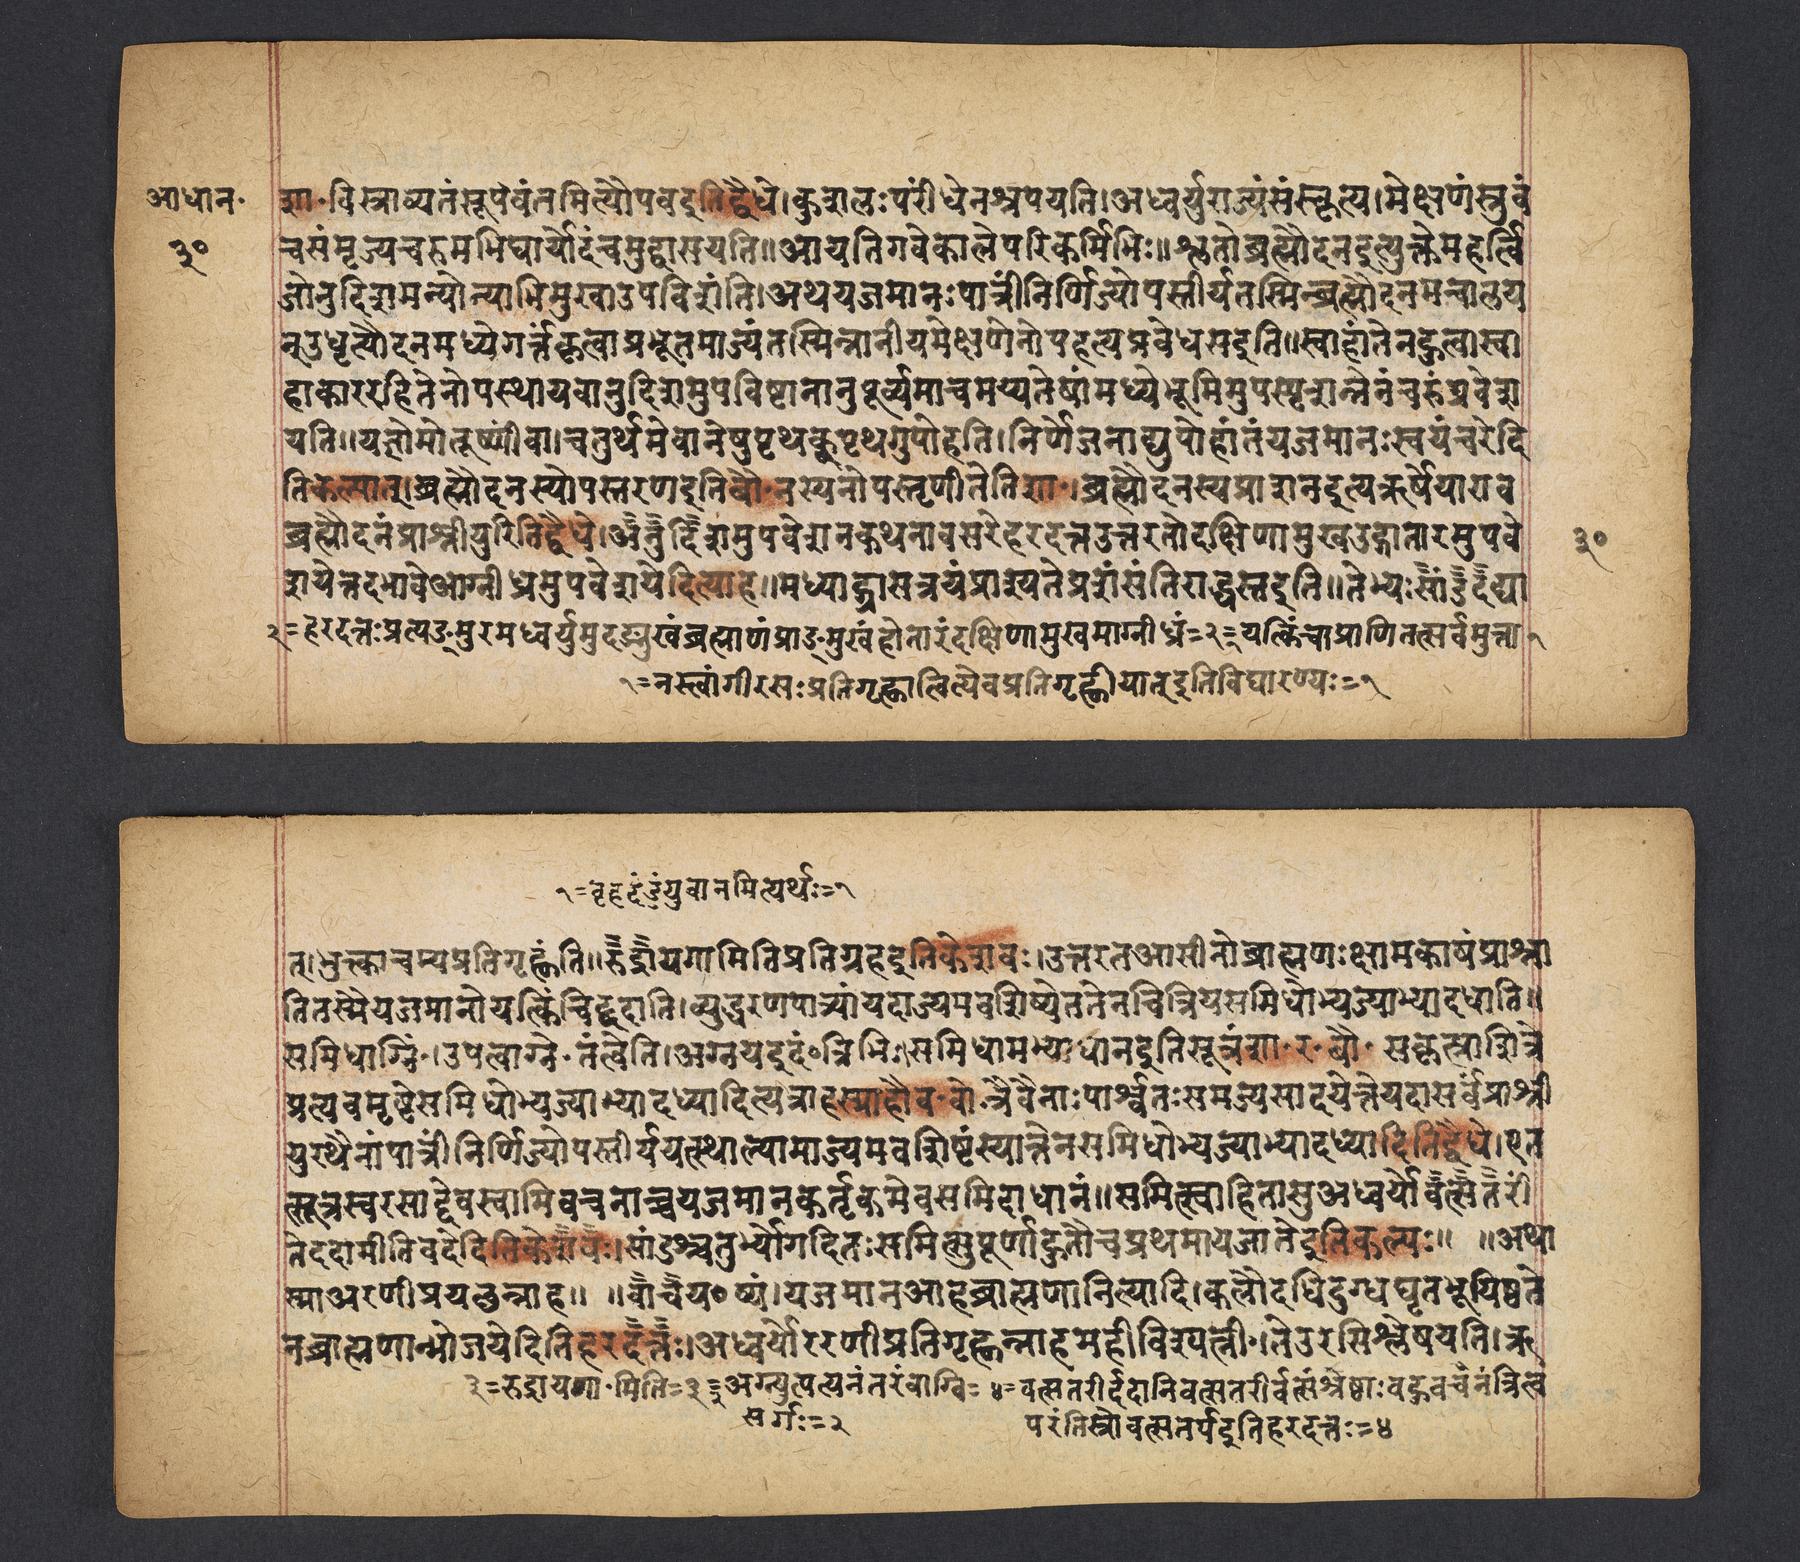 आधान॰
३०
शा॰विस्राव्यतंसूपेवंतमित्यौपवदुतिद्वैधे।कुशलःपरींधेनश्रपयति।अध्वर्युराज्यंसंस्कृत्य।मेक्षणंस्त्रुवं
चसंमृज्यचरुमभिघार्योदंचमुद्वासयति॥आयतिगवेकालेपरिकर्मिभिः॥श्रृतोब्रह्मौदनइत्युक्तेमहर्त्वि
जोनुदिशमन्योन्याभिमुखाउपविशंति।अथयजमानःपात्रींनिर्णिज्योपस्तीर्यतस्मिन्ब्रह्मौदनमन्चालय
न्उधृत्यौदनमध्येगर्त्तंकृत्वाप्रभूतमाज्यंतस्मिन्नानीयमेक्षणेनोपहत्यप्रवेधसइति॥स्वाहांतेनहुत्वास्वा
हाकाररहितेनोपस्थायवानुदिशमुपविष्टानानुपूर्व्यमाचमय्यतेषांमध्येभूमिमुपस्पृशन्नेनंचरुंप्रवेश
यति॥यज्ञोमोतूष्णींवा।चतुर्थमेवानेषुपृथक्पृथगुपोहति।निर्णेजनाद्युपोहांतंयजमानःस्वयंचरेदि
तिकेल्पात्।ब्रह्मौदनस्योपस्तरणइतिबौ॰नस्यनोपस्तृणीतेतिशा॰।ब्रह्मौदनस्यप्राशनइत्यऋर्षेयाएव
ब्रह्मौदनंप्राश्नीयुरितिद्वैधे।अनुदिशमुपवेशनकथनावसरेहरदत्तउत्तरतोदक्षिणामुखउद्गातारमुपवे
शयेत्तदभावेआग्नीध्रमुपवेशयेदित्याह॥मध्याद्ग्रासत्रयंप्राश्यतेप्रशंसंतिराद्धस्तइति॥तेभ्यःसांडंदद्या
२=हरदत्तःप्रत्यङ्मुरमध्वर्युमुदङ्मुखंब्रह्माणंप्राङ्मुखंहोतारंदक्षिणामुखमाग्नीध्रं=२=यत्किंचाप्राणितत्सर्वमुत्ता१
३०
१=नस्त्वांगीरसःप्रतिगृह्णात्वित्येवप्रतिगृह्णीयात्इतिविघारण्यः=१
१=वृहदंडंयुवानमित्यर्थः=१
त्।भुक्त्काचम्यप्रतिगृह्णंति॥रुद्रायगामितिप्रतिग्रहइतिकेशवः।उत्तरतआसीनोब्राह्मणःक्षामकाषंप्राश्ना
तितस्मैयजमानोयत्किंचिद्ददाति।व्युद्धरणपात्र्यांयदाज्यमवशिष्येततेनचित्रियसमिधोभ्यज्याभ्यादधाति॥
समिधाग्निं॰।उपत्वाग्ने॰तंत्वेति।अग्नयइदं॰त्रिभिःसमिधामभ्याधानइतिसूत्रंशा॰र॰बौ॰सकृत्प्राशित्रे
प्रत्यवमृष्टेसमिधोभ्यज्याभ्यादध्यादित्यत्राहस्माहौप॰वो॰त्रैवैनाःपार्श्वतःसमज्यसादयेत्तेयदासर्वेप्राश्नी
युरथैनांपात्रींनिर्णिज्योपस्तीर्ययत्स्थाल्यामाज्यमवशिष्टंस्यात्तेनसमिधोभ्यज्याभ्यादध्यादितिद्वैधे।एत
त्सूत्रस्वरसाद्देवस्वामिवचनाच्चयजमानकर्तृकमेवसमिदाधानं॥समित्स्वाहितासुअध्वर्योवत्सैतरीं
तेददामीतिवदेदितिकेशवः।सांडश्चतुर्भ्योगदितःसमित्सुपूर्णाहुतौचप्रथमायजातेइतिकल्पः॥ ॥अथा
स्माअरणीप्रयछन्नाह॥ ॥वाचय॰ष्यं।यजमानआहब्राह्मणानित्यादि।कलौदधिदुग्धघृतभूयिष्ठते
नब्राह्मणान्भोजयेदितिहरदत्तः।अध्वर्योररणीप्रतिगृह्णन्नाहमहीविश्पत्नी॰।तेउरसिश्लेषयति।ऋ
३=रुद्रायगा॰मिति=३=अग्न्युत्पत्यनंतरंवाग्वि=४=वत्सतरीर्ददानिवत्सतरीर्वत्संश्रेष्ठाःबहुवचंनंत्रित्व
सर्गः=२
परंतिस्रोवत्सतर्यइतिहरदत्तः=४